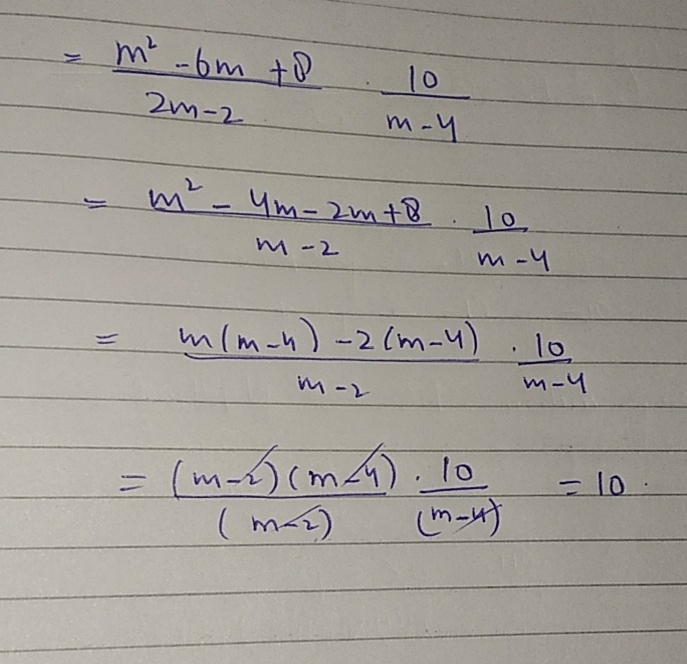 = m² - 6m + 8 / 2m - 2 · 10 / m - 4
= m² - 4m - 2m + 8 / m - 2 · 10 / m - 4
= m(m - 4) - 2(m - 4) / m - 2 · 10 / m - 4
= (m - 2)(m - 4) / (m - 2) · 10 / (m - 4) = 10 .